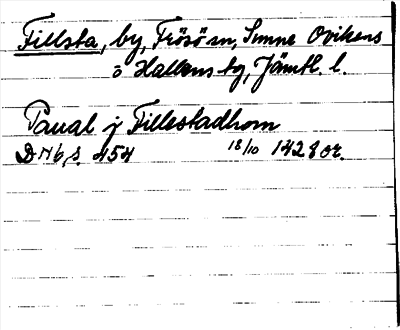 Fillsta, by, Frösö sn, Sunne Ovikens
o Hallens tg, Jämtl. l.
Paual j Fillestadhom
DN 6, s. 454 18/10 1428 or.